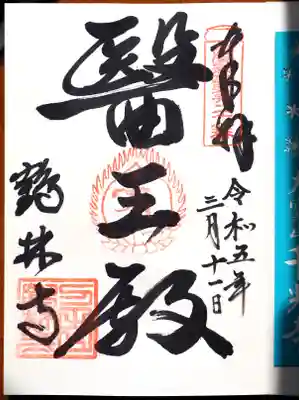 奉拝
令和五年
三月十一日
醫王殿
鶴林寺